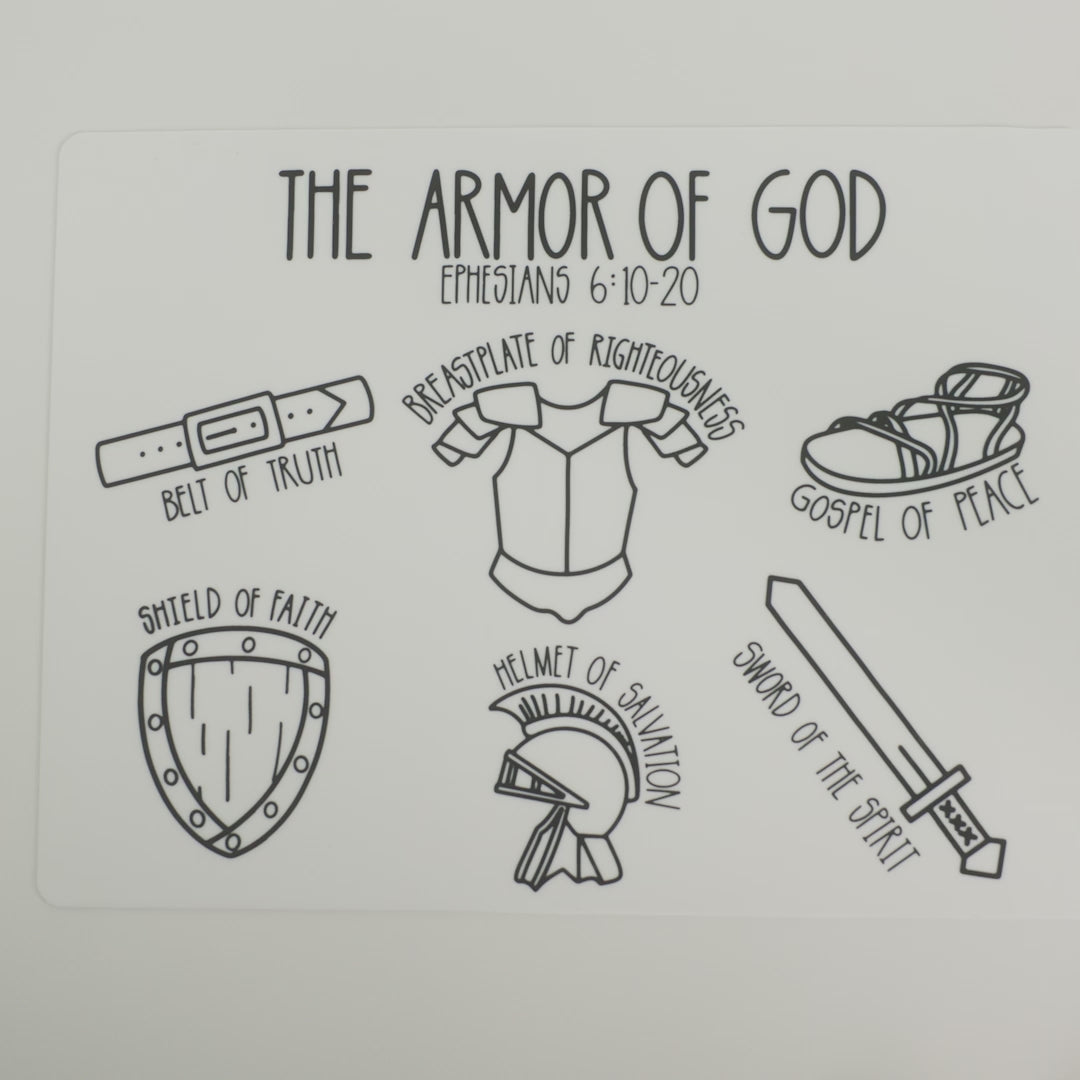 THE ARMOR OF GOD
EPHESIANS 6:10-20
BELT OF TRUTH
BREASTPLATE OF RIGHTEOUSNESS
GOSPEL OF PEACE
SHIELD OF FAITH
HELMET OF SALVATION
SWORD OF THE SPIRIT